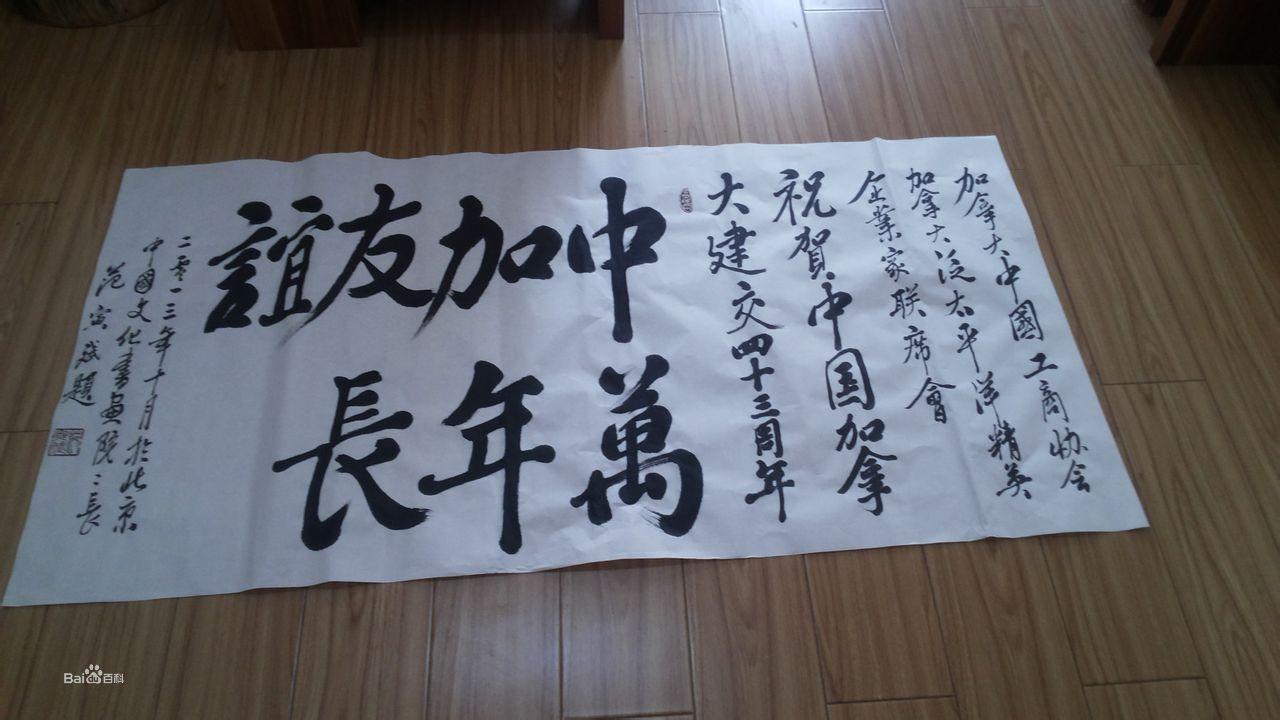 加拿大中國工商协会
加拿大泛太平洋精英
企業家联席會
祝賀中国加拿
大建交四十三周年
中萬
加年
友長
誼
二零一三年十月於北京
中國文化書画院〻長
范寅 題
Bai 百科